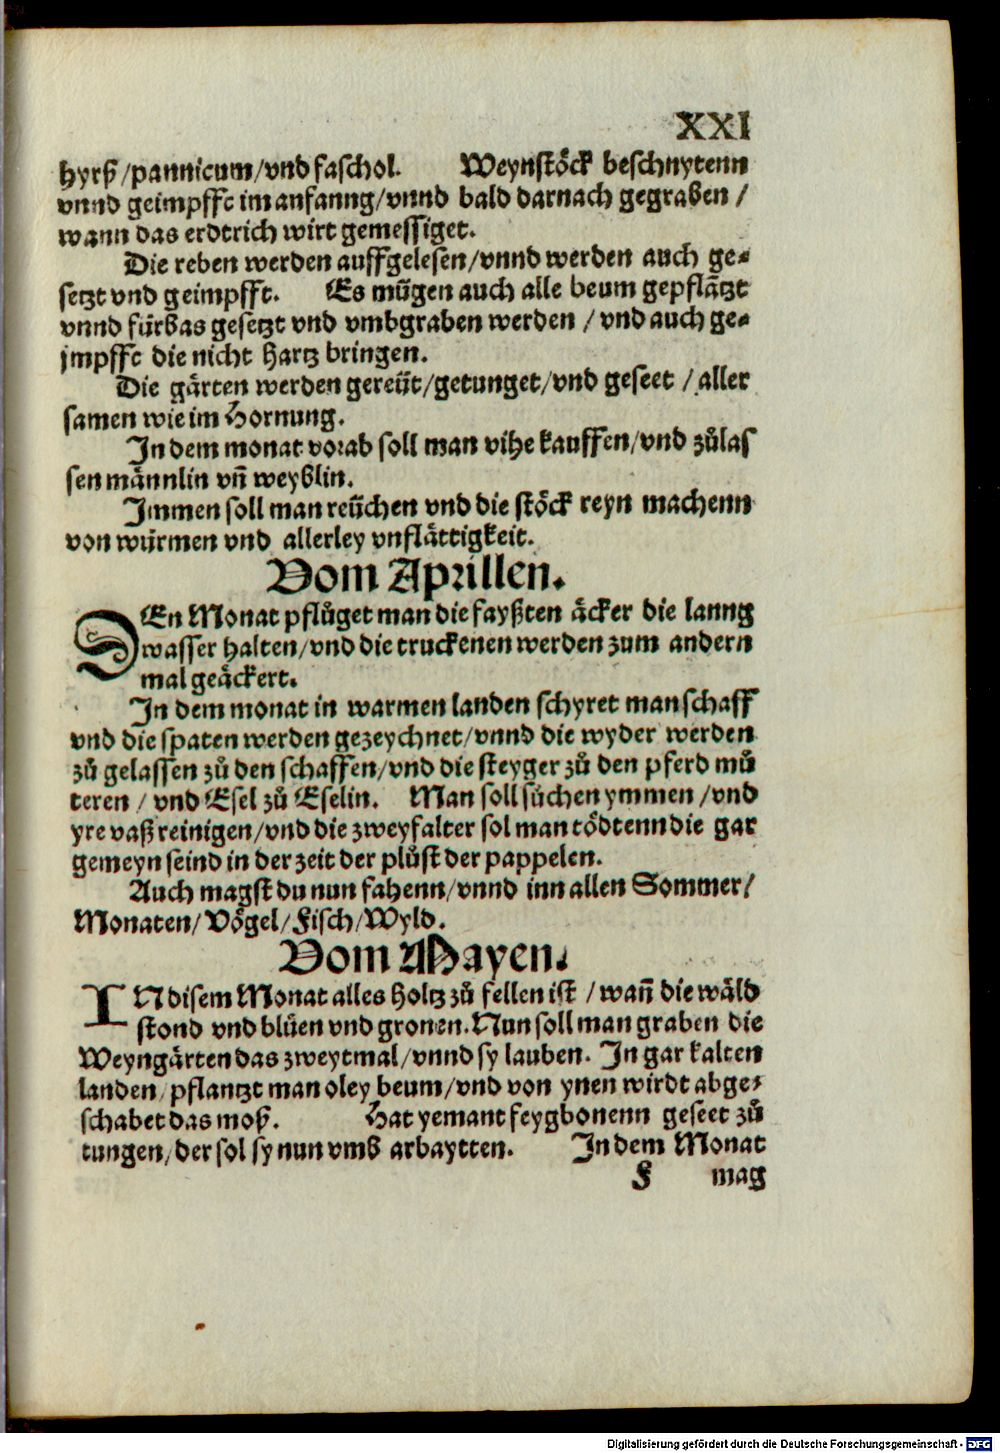 XXI
hyrß/pannicum/vnd faschol. Weynstöck beschnytenn
vnnd geimpfft im anfanng/vnnd bald darnach gegraben/
wann das erdtrich wirt gemessiget.
Die reben werden auffgelesen/vnnd werden auch ge⸗
setzt vnd geimpfft. Es mu̇gen auch alle beum gepflätzt
vnnd fürbas gesetzt vnd vmbgraben werden/vnd auch ge⸗
jmpfft die nicht hartz bringen.
Die gärten werden gereüt/getunget/vnd geseet/aller
samen wie im Hornung.
In dem monat vorab soll man vihe kauffen/vnd zůlas
sen männlin vñ weyblin.
Immen soll man reüchen vnd die stöck reyn machenn
von würmen vnd allerley vnflättigkeit.
Vom Aprillen.
DEn Monat pflůget man die fayßten äcker die lanng
wasser halten/vnd die truckenen werden zum andern
mal geäckert.
In dem monat in warmen landen schyret man schaff
vnd die spaten werden gezeychnet/vnnd die wyder werden
zů gelassen zů den schaffen/vnd die steyger zů den pferd mů
teren/vnd Esel zů Eselin. Man soll sůchen ymmen/vnd
yre vaß reinigen/vnd die zweyfalter sol man tödtenn die gar
gemeyn seind in der zeit der plůst der pappelen.
Auch magst du nun fahenn/vnnd inn allen Sommer/
Monaten/Vögel/Fisch/Wyld.
Vom Mayen.
IN disem Monat alles holtz zů fellen ist/wañ die wäld
stond vnd blüen vnd gronen. Nun soll man graben die
Weyngärten das zweytmal/vnnd sy lauben. In gar kalten
landen/pflantzt man oley beum/vnd von ynen wirdt abge⸗
schabet das moß. Hat yemant feygbonenn geseet zů
tungen/der sol sy nun vmb arbaytten. In dem Monat
F mag
Digitalisierung gefördert durch die Deutsche Forschungsgemeinschaft - DFG